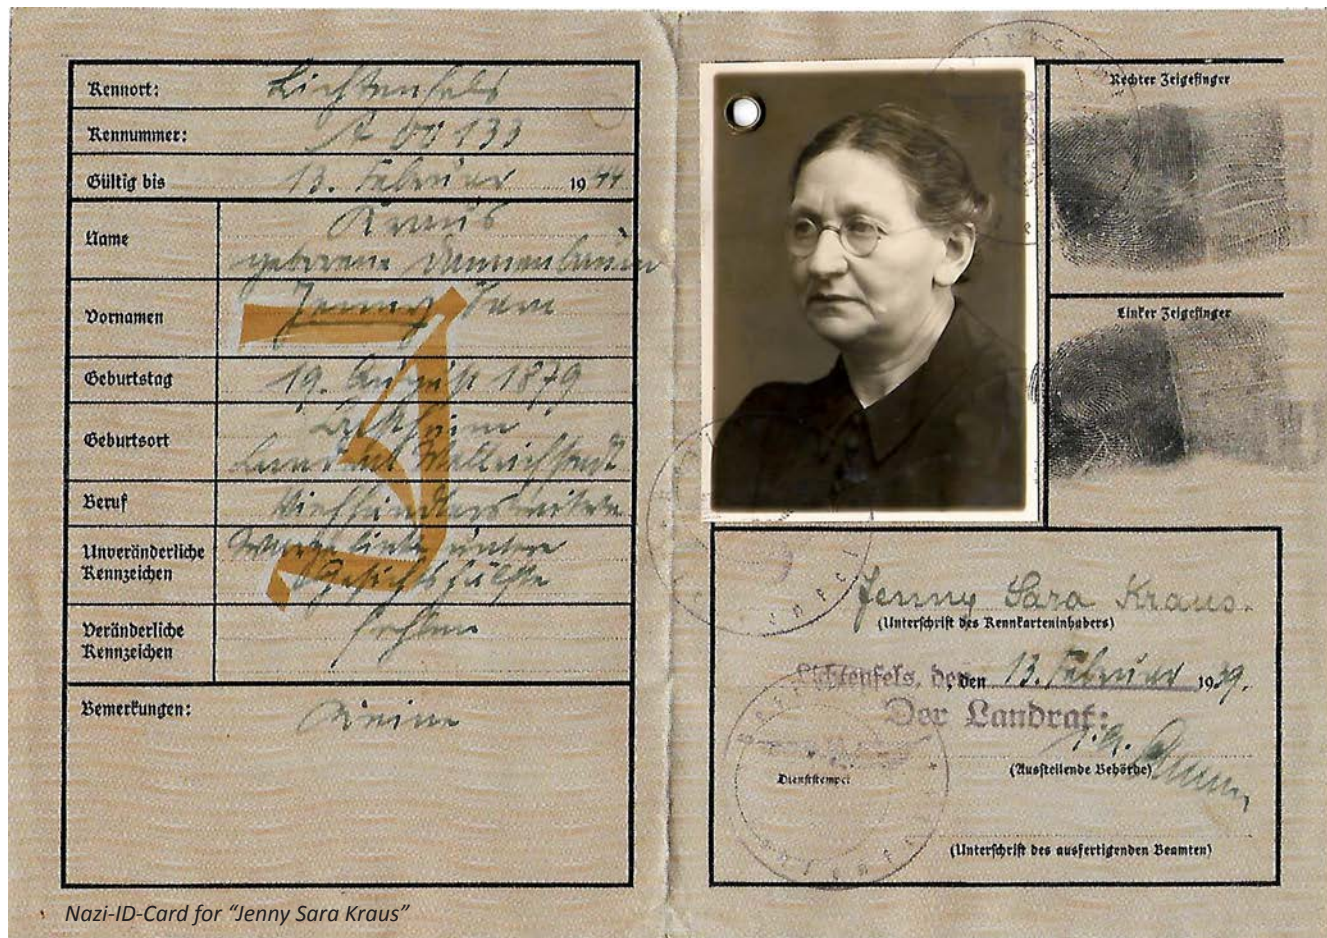 Kennort: Lichtenfels
Kennummer: A 00133
Gültig bis 13. Februar 1944
Name Kraus
geborene
Vornamen Jenny Sara
Geburtstag 19. August 1879
Geburtsort
Beruf Viehhändlerswitwe
Unveränderliche Kennzeichen Warze linke untere
Gesichtshälfte
Veränderliche Kennzeichen fehlen
Bemerkungen: Keine
Rechter Zeigefinger
Linker Zeigefinger
Jenny Sara Kraus.
(Unterschrift des Kennkarteninhabers)
Lichtenfels, den 13. Februar 1939.
Der Landrat:
(Ausstellende Behörde)
Dienststempel
(Unterschrift des ausfertigenden Beamten)
J
Nazi-ID-Card for “Jenny Sara Kraus”